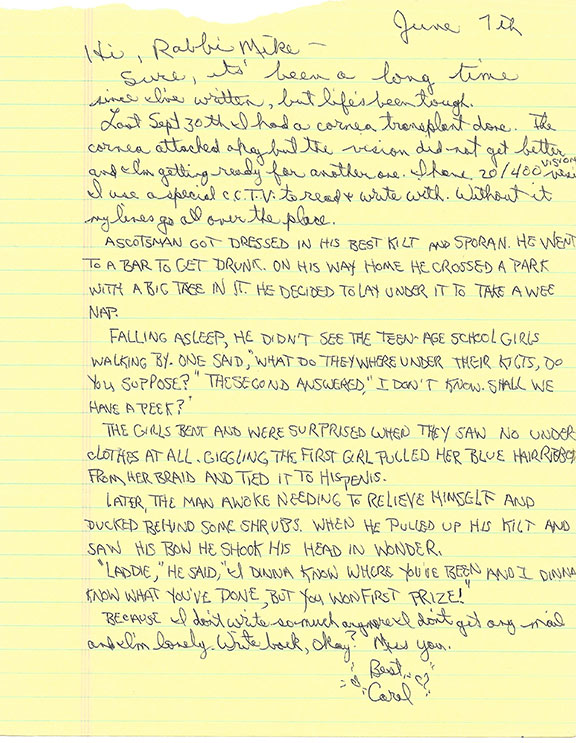 June 7th
Hi, Rabbi Mike –
Sure, its' been a long time
since I've written, but life's been tough.
Last Sept 30th I had a cornea transplant done. The
cornea attached okay but the vision did not get better
and I'm getting ready for another one. I have 20/400 VISION
I use a special C.C.T.V. to read & write with. Without it
my lines go all over the place.
A SCOTSMAN GOT DRESSED IN HIS BEST KILT AND SPORAN. HE WENT
TO A BAR TO GET DRUNK. ON HIS WAY HOME HE CROSSED A PARK
WITH A BIG TREE IN IT. HE DECIDED TO LAY UNDER IT TO TAKE A WEE
NAP.
FALLING ASLEEP, HE DIDN'T SEE THE TEEN-AGE SCHOOL GIRLS
WALKING BY. ONE SAID, "WHAT DO THEY WHERE UNDER THEIR KILTS, DO
YOU SUPPOSE?" THE SECOND ANSWERED, "I DON'T KNOW. SHALL WE
HAVE A PEEK?'
THE GIRLS BENT AND WERE SURPRISED WHEN THEY SAW NO UNDER
CLOTHES AT ALL. GIGGLING THE FIRST GIRL PULLED HER BLUE HAIR RIBBON
FROM HER BRAID AND TIED IT TO HIS PENIS.
LATER, THE MAN AWOKE NEEDING TO RELIEVE HIMSELF AND
DUCKED BEHIND SOME SHRUBS. WHEN HE PULLED UP HIS KILT AND
SAW HIS BOW HE SHOOK HIS HEAD IN WONDER.
"LADDIE," HE SAID, "I DINNA KNOW WHERE YOU'VE BEEN AND I DINNA
KNOW WHAT YOU'VE DONE, BUT YOU WON FIRST PRIZE!"
BECAUSE I don't write so much anymore I don't get any mail
and I'm lonely. Write back, okay? Miss you.
Best,
Carol